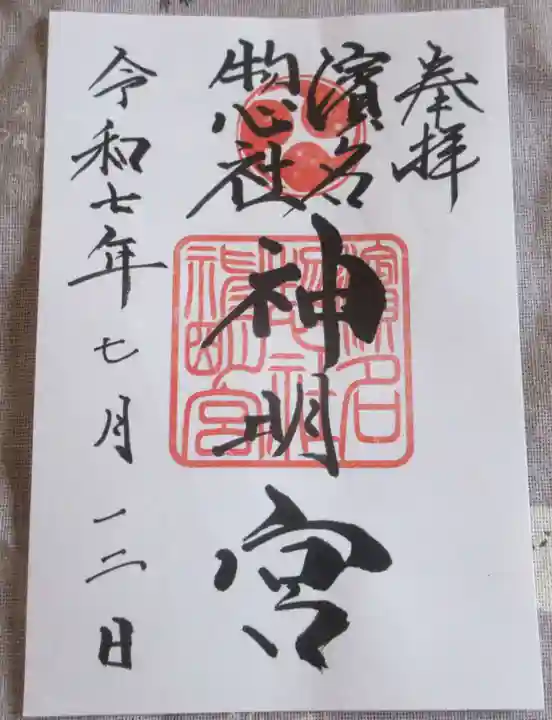 奉拝
濱名
惣社
神明宮
令和七年七月一二日
濱名
惣社
神明宮